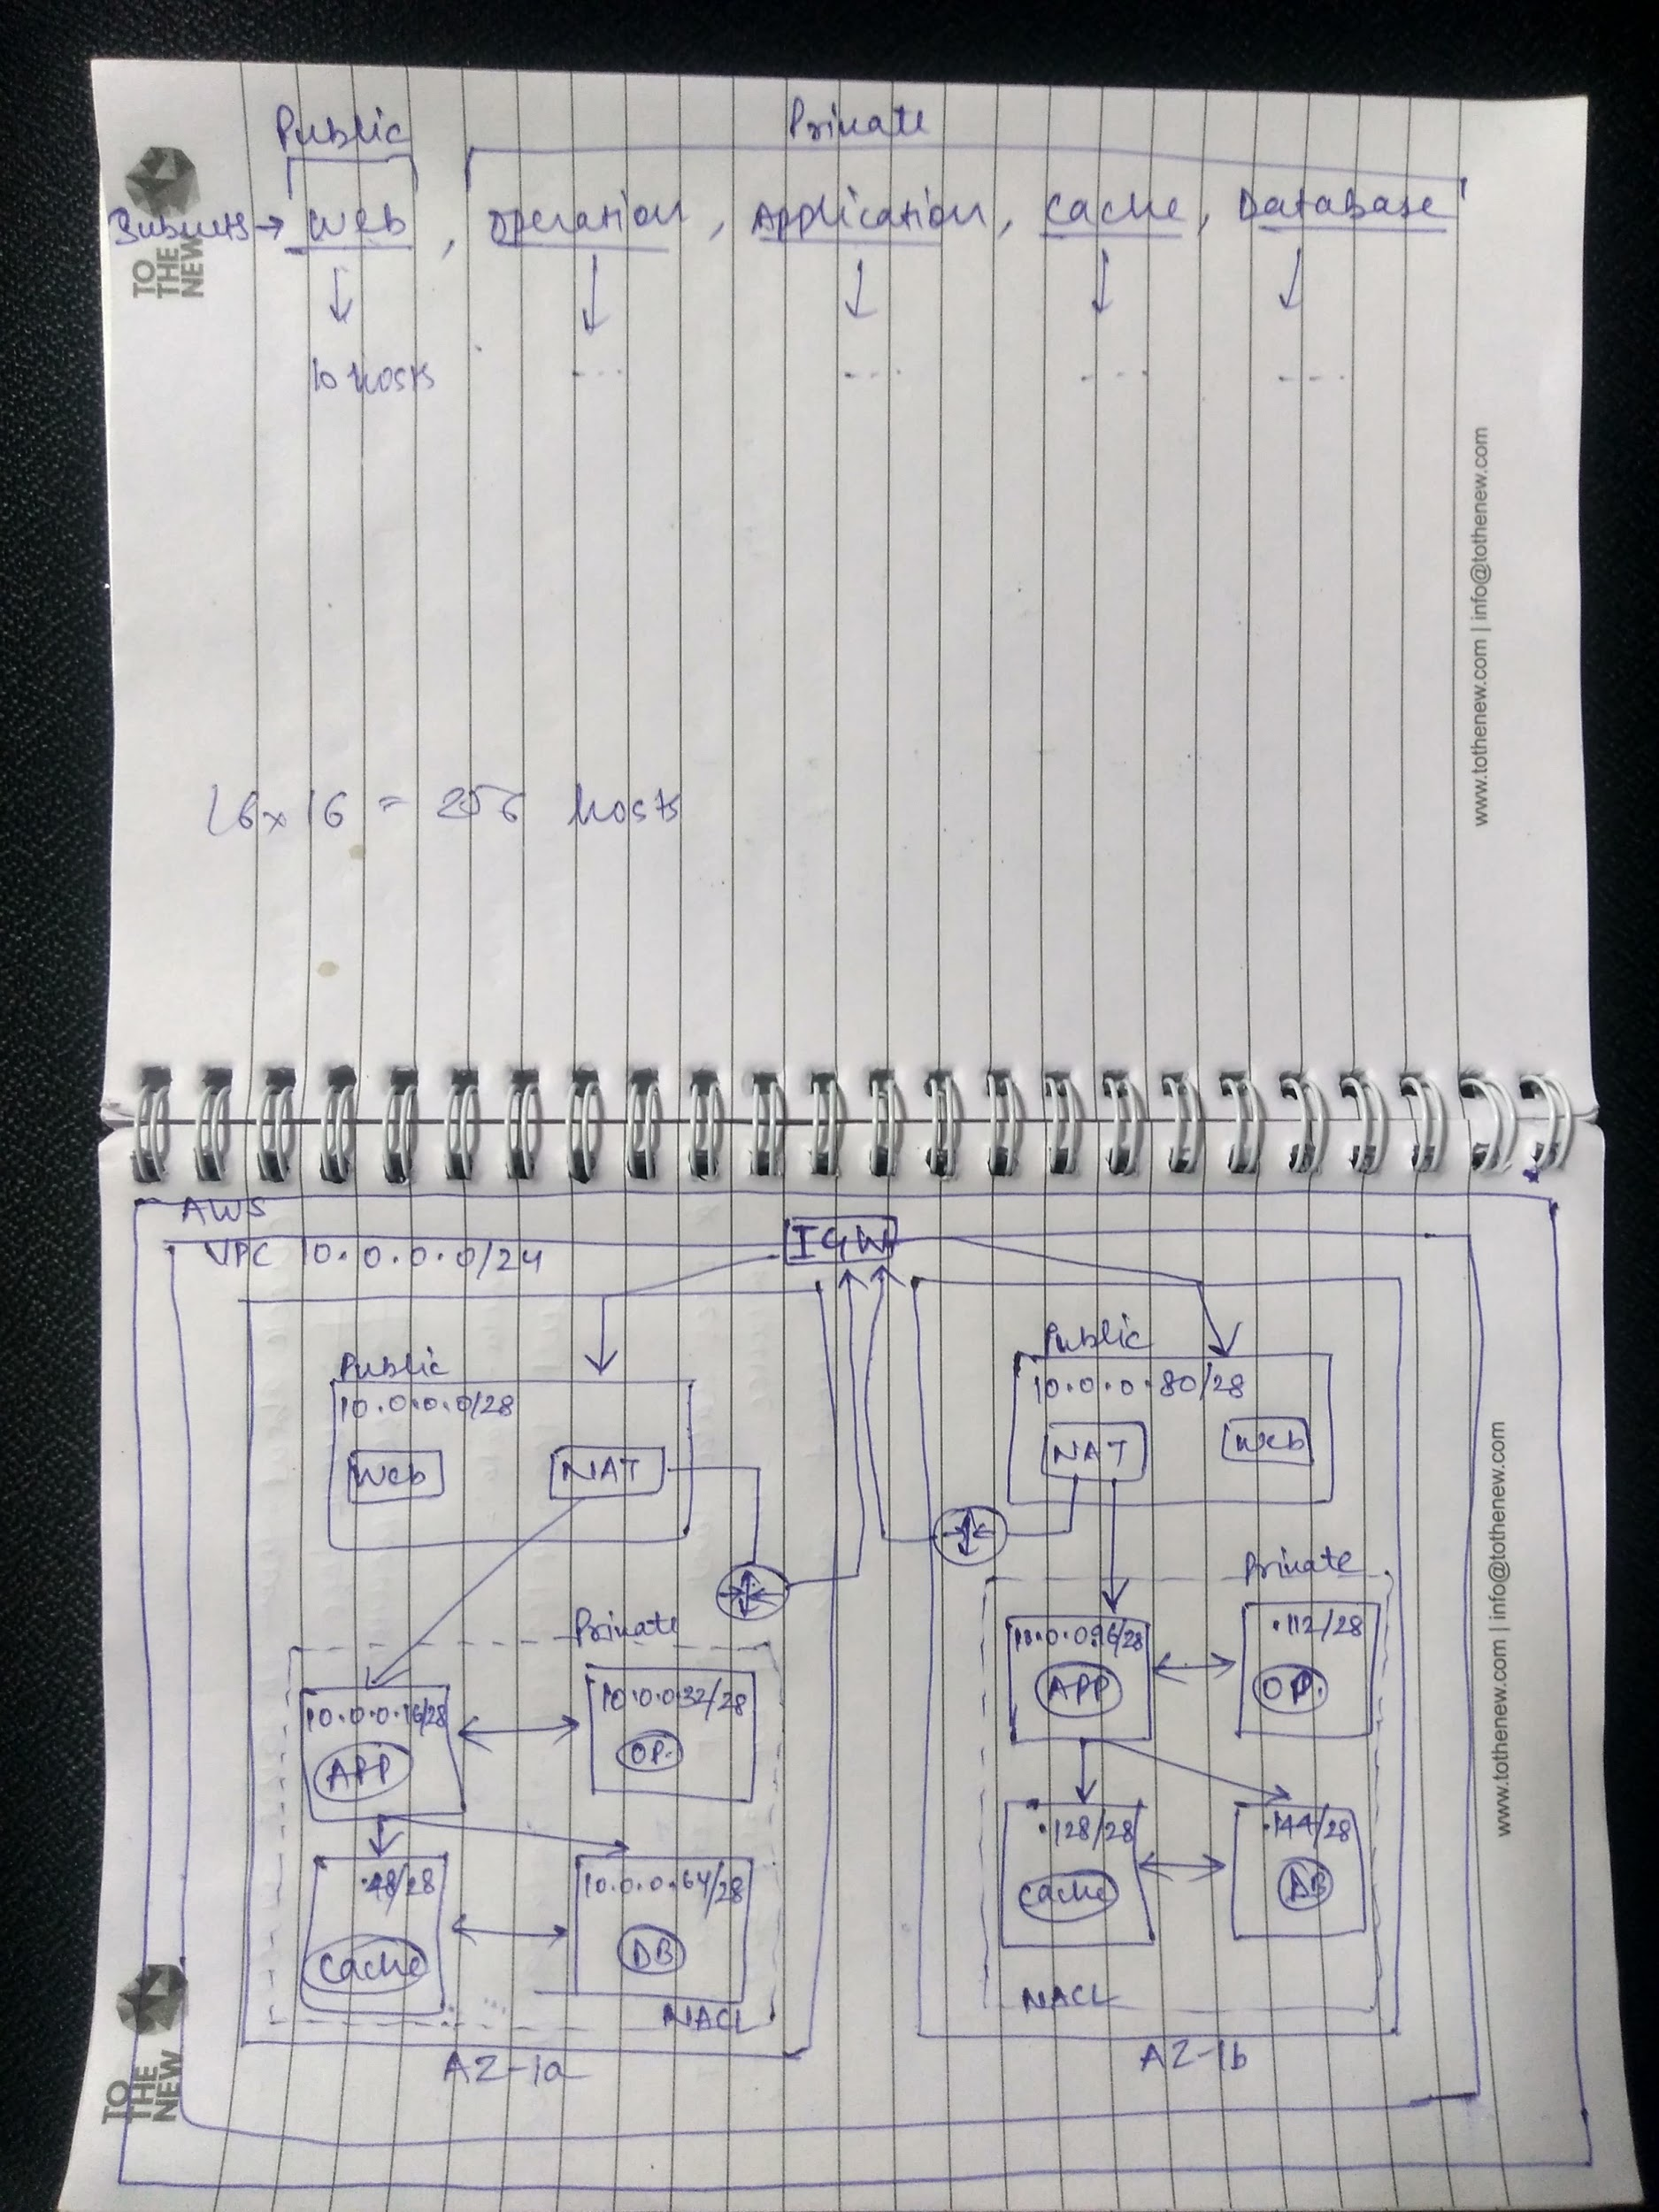 Public
Private
Subnets → Web , Operation , Application , Cache , Database
10 hosts --- --- --- ---
16 x 16 = 256 hosts
TO
THE
NEW
www.tothenew.com | info@tothenew.com
AWS
IGW
VPC 10.0.0.0/24
Public
10.0.0.0/28
Web
NAT
Private
10.0.0.16/28
APP
10.0.0.32/28
OP.
.48/28
Cache
10.0.0.64/28
DB
NACL
AZ-1a
Public
10.0.0.80/28
NAT
Web
Private
10.0.0.96/28
APP
.112/28
OP.
.128/28
Cache
.144/28
DB
NACL
AZ-1b
TO
THE
NEW
www.tothenew.com | info@tothenew.com